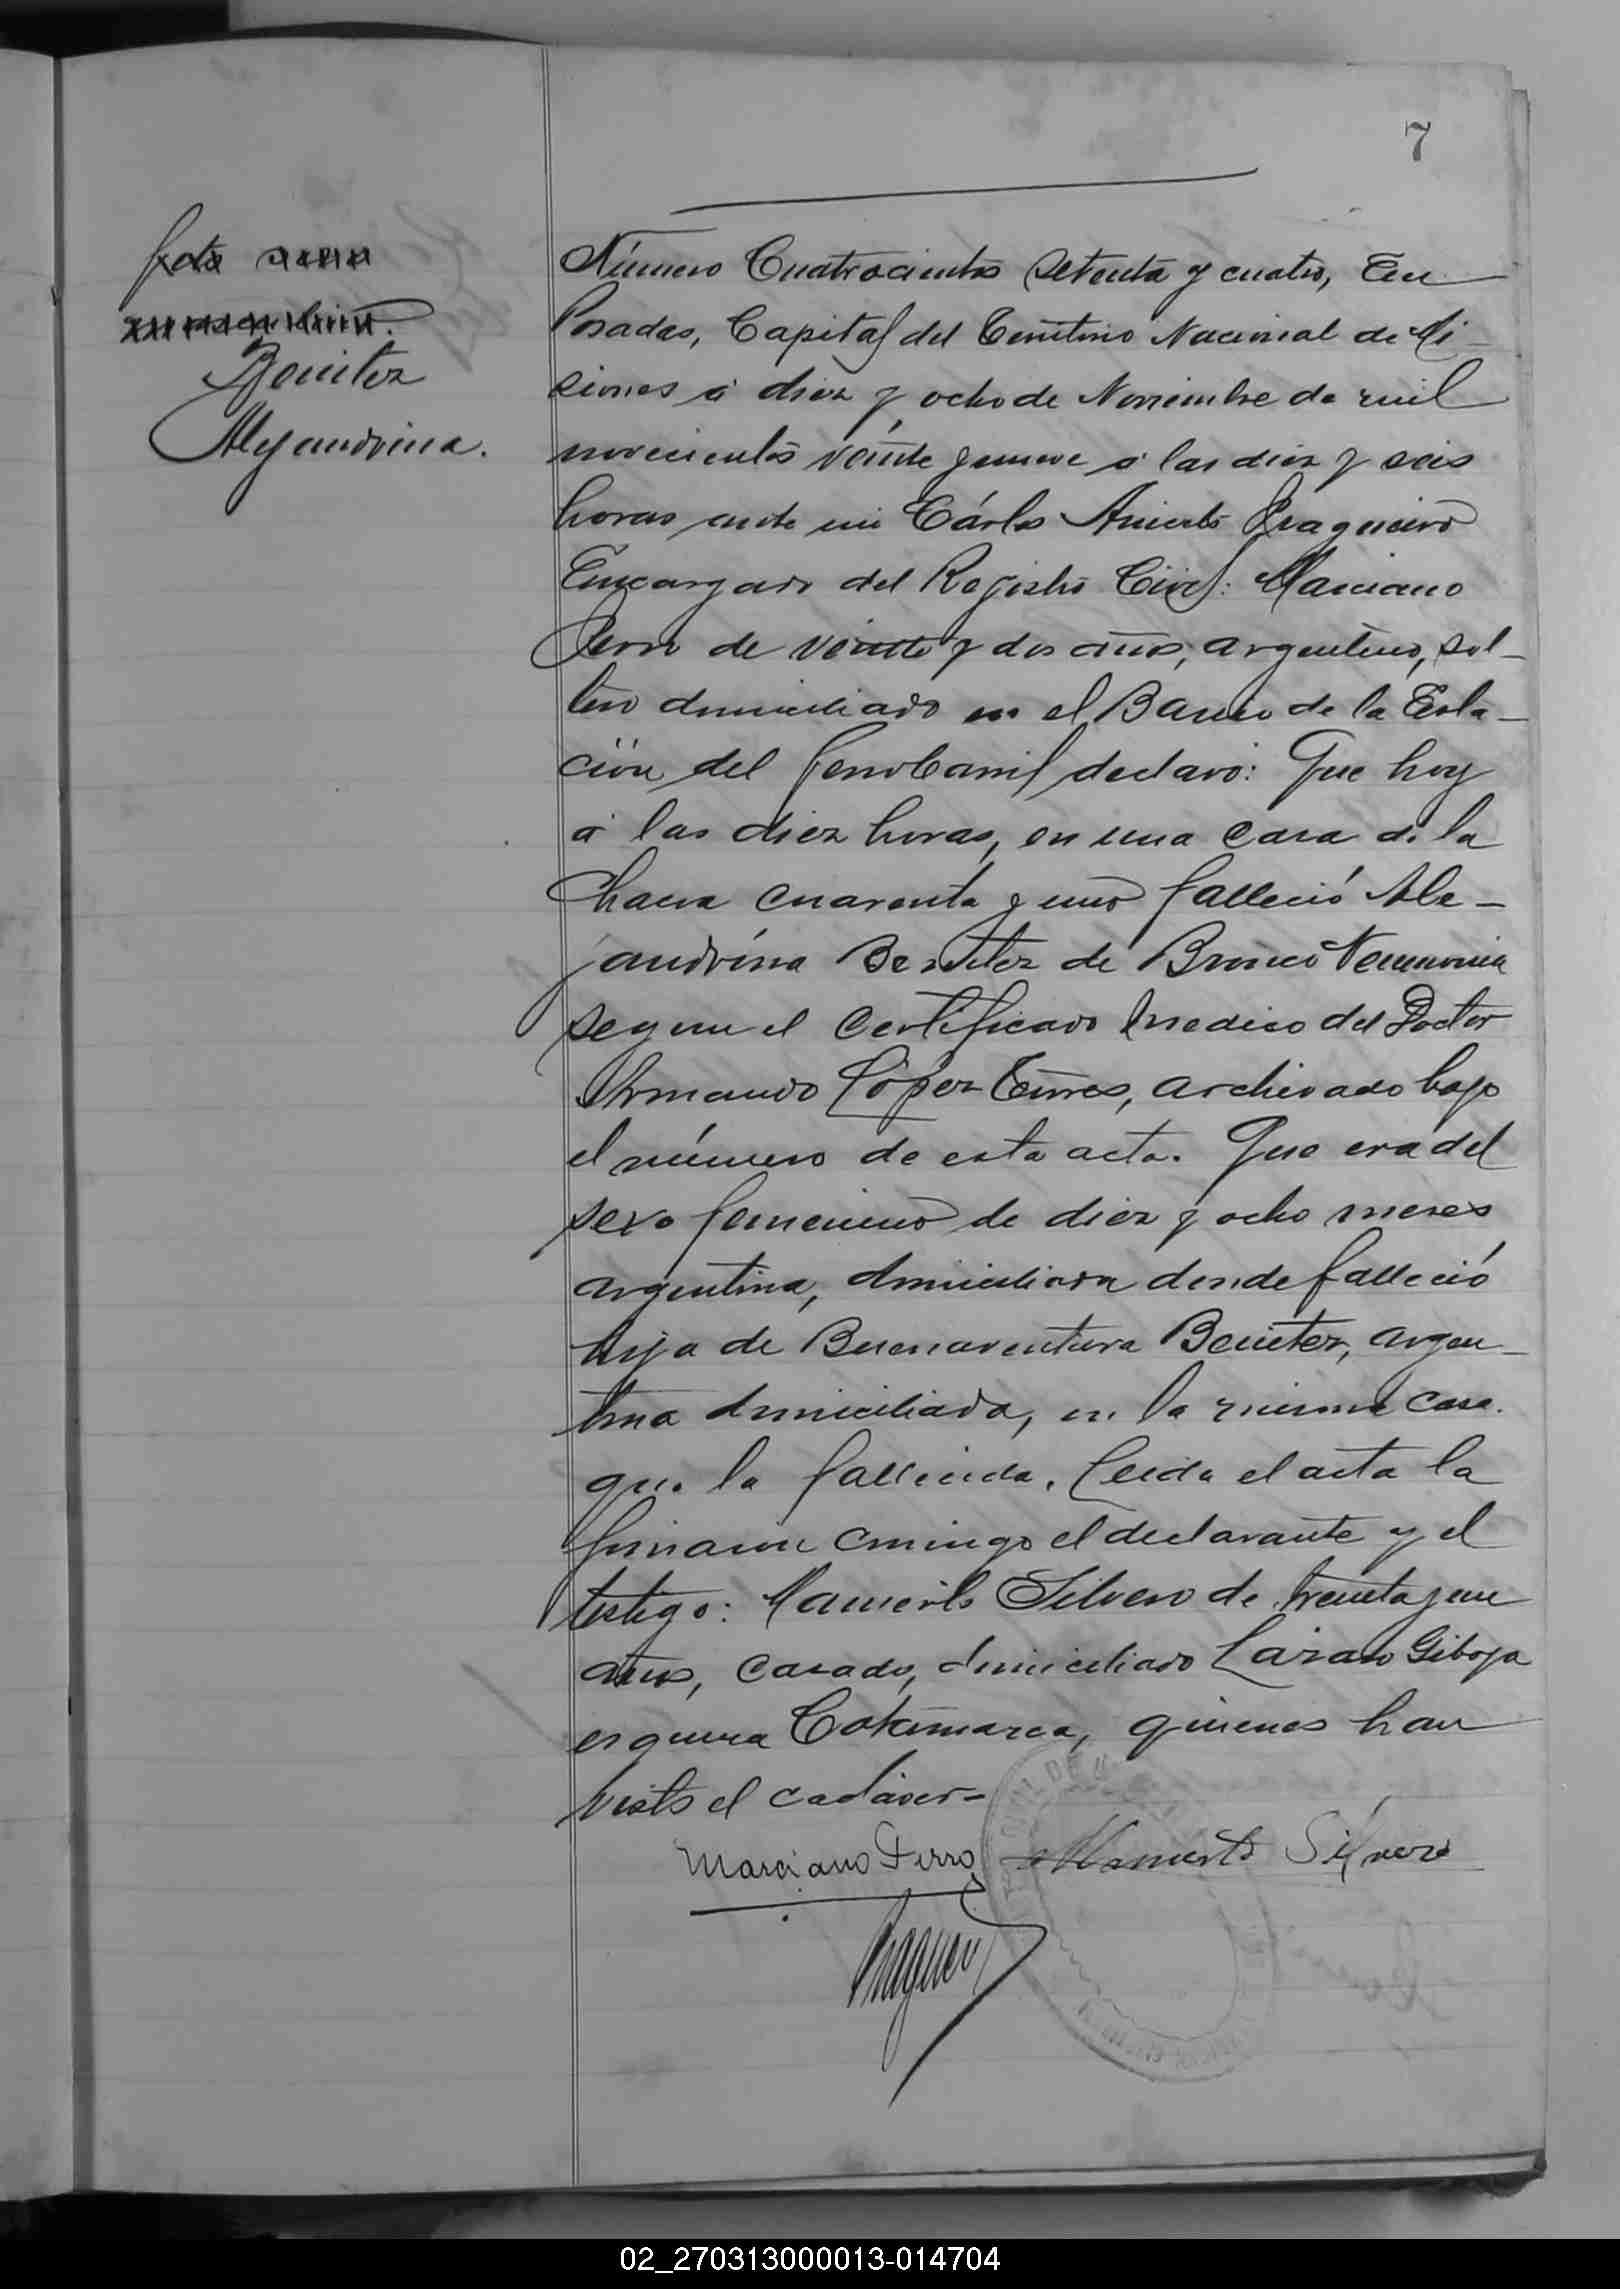 7
Feto sexo
masculino.
Benitez
Alejandrina.
Número Cuatrocientos setenta y cuatro, En
Posadas, Capital del Territorio Nacional de Mi-
siones á diez y ocho de Noviembre de mil
novecientos veinte y nueve á las diez y seis
horas ante mi Cárlos Aniceto Fragueiro
Encargado del Registro Civil: Marciano
Ferro de veinte y dos años, argentino, sol-
tero domiciliado en el Barrio de la Esta-
ción del ferrocarril declaró: Que hoy
á las diez horas, en una casa de la
chacra cuarenta y uno falleció Ale-
jandrina Benitez de Bronco Neumonia
segun el certificado medico del Doctor
Armando López Torres, archivado bajo
el número de esta acta. Que era del
sexo femenino de diez y ocho meses
argentina, domiciliada donde falleció
hija de Buenaventura Benitez, argen-
tina domiciliada, en la misma casa
que la fallecida. Leida el acta la
firmaron conmigo el declarante y el
testigo: Mamerto Silvero de treinta y un
años, casado, domiciliado Lázaro Giboja
esquina Catamarca, quienes han
visto el cadáver-
Marciano Ferro Mamerto Silvero
02_270313000013-014704